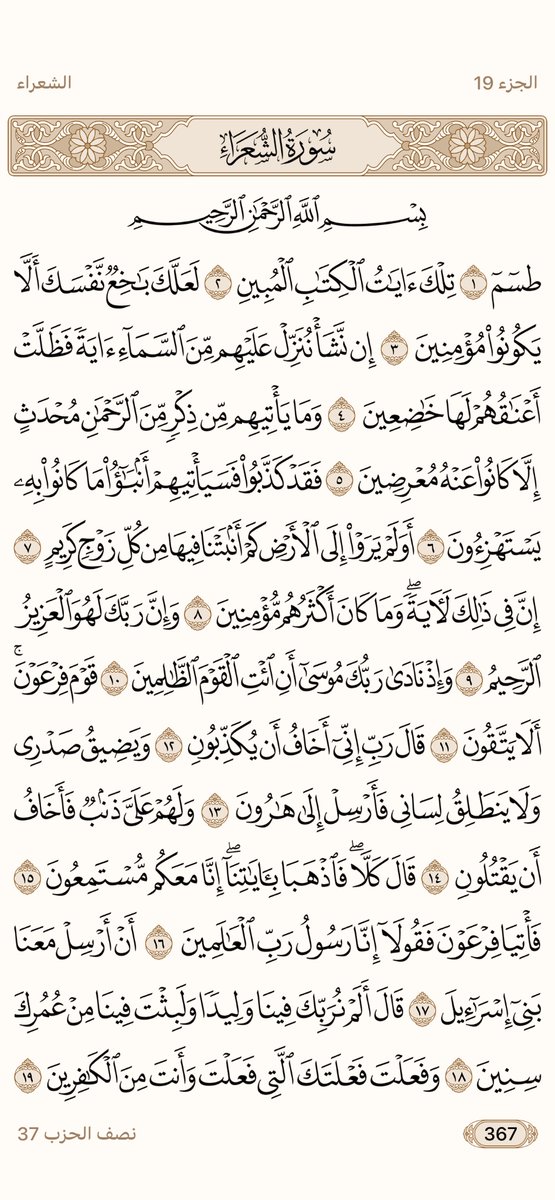 الجزء 19
الشعراء
سُورَةُ الشُّعَرَاءِ
بِسْمِ اللَّهِ الرَّحْمَٰنِ الرَّحِيمِ
طسٓمٓ ١ تِلْكَ ءَايَٰتُ ٱلْكِتَٰبِ ٱلْمُبِينِ ٢ لَعَلَّكَ بَٰخِعٌ نَّفْسَكَ أَلَّا
يَكُونُوا۟ مُؤْمِنِينَ ٣ إِن نَّشَأْ نُنَزِّلْ عَلَيْهِم مِّنَ ٱلسَّمَآءِ ءَايَةً فَظَلَّتْ
أَعْنَٰقُهُمْ لَهَا خَٰضِعِينَ ٤ وَمَا يَأْتِيهِم مِّن ذِكْرٍ مِّنَ ٱلرَّحْمَٰنِ مُحْدَثٍ
إِلَّا كَانُوا۟ عَنْهُ مُعْرِضِينَ ٥ فَقَدْ كَذَّبُوا۟ فَسَيَأْتِيهِمْ أَنۢبَٰٓؤُا۟ مَا كَانُوا۟ بِهِۦ
يَسْتَهْزِءُونَ ٦ أَوَلَمْ يَرَوْا۟ إِلَى ٱلْأَرْضِ كَمْ أَنۢبَتْنَا فِيهَا مِن كُلِّ زَوْجٍ كَرِيمٍ ٧
إِنَّ فِى ذَٰلِكَ لَءَايَةً ۖ وَمَا كَانَ أَكْثَرُهُم مُّؤْمِنِينَ ٨ وَإِنَّ رَبَّكَ لَهُوَ ٱلْعَزِيزُ
ٱلرَّحِيمُ ٩ وَإِذْ نَادَىٰ رَبُّكَ مُوسَىٰٓ أَنِ ٱئْتِ ٱلْقَوْمَ ٱلظَّٰلِمِينَ ١٠ قَوْمَ فِرْعَوْنَ ۚ
أَلَا يَتَّقُونَ ١١ قَالَ رَبِّ إِنِّىٓ أَخَافُ أَن يُكَذِّبُونِ ١٢ وَيَضِيقُ صَدْرِى
وَلَا يَنطَلِقُ لِسَانِى فَأَرْسِلْ إِلَىٰ هَٰرُونَ ١٣ وَلَهُمْ عَلَىَّ ذَنۢبٌ فَأَخَافُ
أَن يَقْتُلُونِ ١٤ قَالَ كَلَّا ۖ فَٱذْهَبَا بِـَٔايَٰتِنَآ ۖ إِنَّا مَعَكُم مُّسْتَمِعُونَ ١٥
فَأْتِيَا فِرْعَوْنَ فَقُولَآ إِنَّا رَسُولُ رَبِّ ٱلْعَٰلَمِينَ ١٦ أَنْ أَرْسِلْ مَعَنَا
بَنِىٓ إِسْرَٰٓءِيلَ ١٧ قَالَ أَلَمْ نُرَبِّكَ فِينَا وَلِيدًا وَلَبِثْتَ فِينَا مِنْ عُمُرِكَ
سِنِينَ ١٨ وَفَعَلْتَ فَعْلَتَكَ ٱلَّتِى فَعَلْتَ وَأَنتَ مِنَ ٱلْكَٰفِرِينَ ١٩
367
نصف الحزب 37